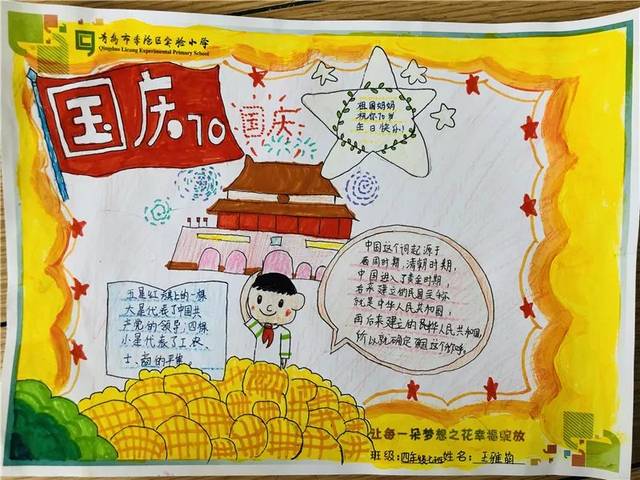 青岛市李沧区实验小学
Qingdao Licang Experimental Primary School
国庆70
国庆
祖国妈妈
祝你70岁
生日快乐!
中国这个词起源于
西周时期,清朝时期,
中国进入了黄金时期,
后来建立的民国全称
就是中华人民共和国,
再后来建立的
人民共和国,
所以就确定
这个作
五星红旗上的一棵
大星代表了中国共
产党的领导,四棵
小星代表了工、农
士、商的
让每一朵梦想之花幸福绽放
班级:四年级七班 姓名:王雅萌